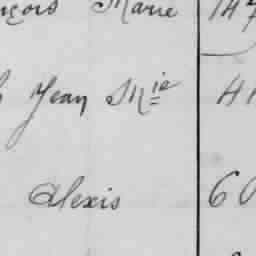 nçois Marie 147
Jean Mie 41
Alexis 60